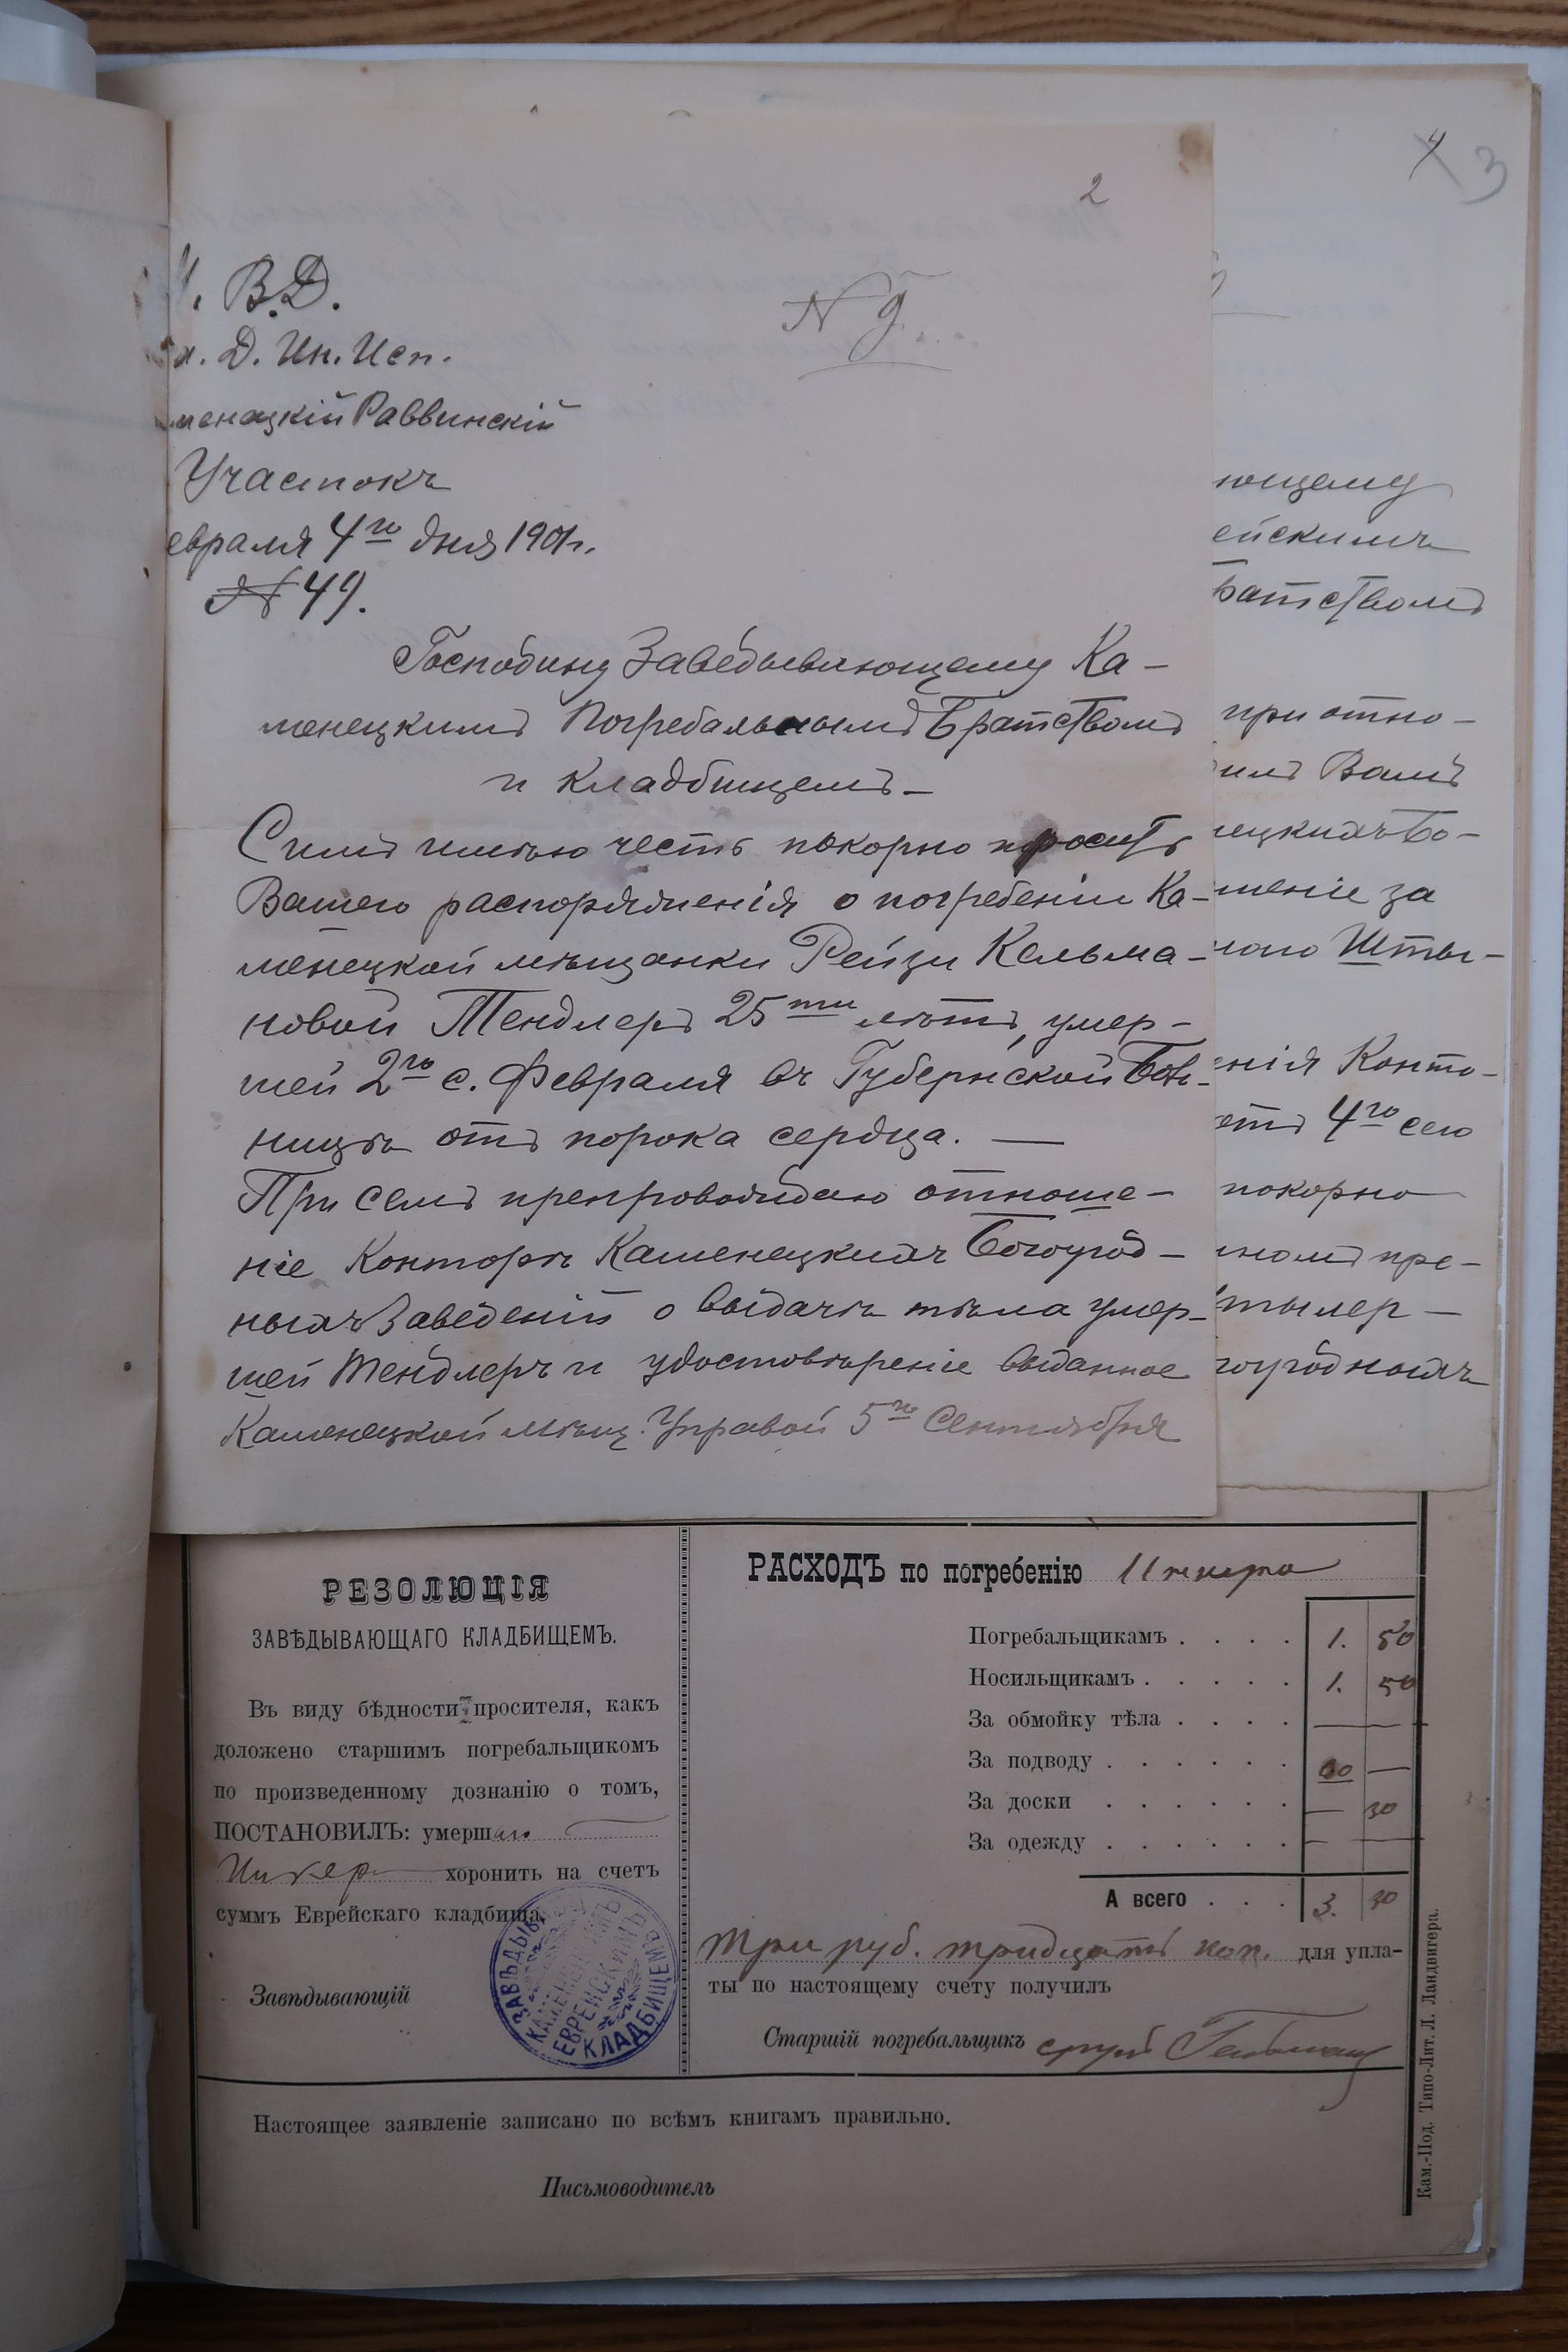 2
№ 9
В.Д.
Д. Ин. Исп.
менецкій Раввинскій
Участокъ
евраля 4го дня 1901г.
№ 49.
Господину Заведывающему Ка-
менецкимъ Погребальнымъ Братствомъ
и кладбищемъ-
Симъ имѣю честь покорно просить
Вашего распоряженія о погребеніи Ка-
менецкой мѣщанки Рейзи Кельма-
новой Тендлеръ 25ти лѣтъ, умер-
шей 2го с. Февраля въ Губернской Боль-
ницѣ отъ порока сердца. —
При семъ препровождаю отноше-
ніе Конторы Каменецкихъ Богоугод-
ныхъ Заведеній о выдачѣ тѣла умер-
шей Тендлеръ и удостовѣреніе выданное
Каменецкой мѣщ. Управой 5го Сентября
3
ющему
ейскимъ
ратствомъ
при отно-
имъ Вамъ
нецкихъ Бо-
шеніе за
Шты-
енія Конто-
отъ 4го сего
покорно
номъ пре-
тылер-
гоугодныхъ
РЕЗОЛЮЦІЯ
ЗАВѢДЫВАЮЩАГО КЛАДБИЩЕМЪ.
Въ виду бѣдности просителя, какъ
доложено старшимъ погребальщикомъ
по произведенному дознанію о томъ,
ПОСТАНОВИЛЪ: умерш
хоронить на счетъ
суммъ Еврейскаго кладбища.
Завѣдывающій
ЗАВѢДЫВ КАМЕНЕЦКИМЪ ЕВРЕЙСКИМЪ КЛАДБИЩЕМЪ
РАСХОДЪ по погребенію
Погребальщикамъ . . . . 1. 50
Носильщикамъ . . . . . 1. 50
За обмойку тѣла . . . . — —
За подводу . . . . . . —
За доски . . . . . . — 30
За одежду . . . . . . — —
А всего . . . 3. 30
три руб. тридцать коп. для упла-
ты по настоящему счету получилъ
Старшій погребальщикъ
Настоящее заявленіе записано по всѣмъ книгамъ правильно.
Письмоводитель
Кам.-Под. Типо-Лит. Л. Ландвигера.